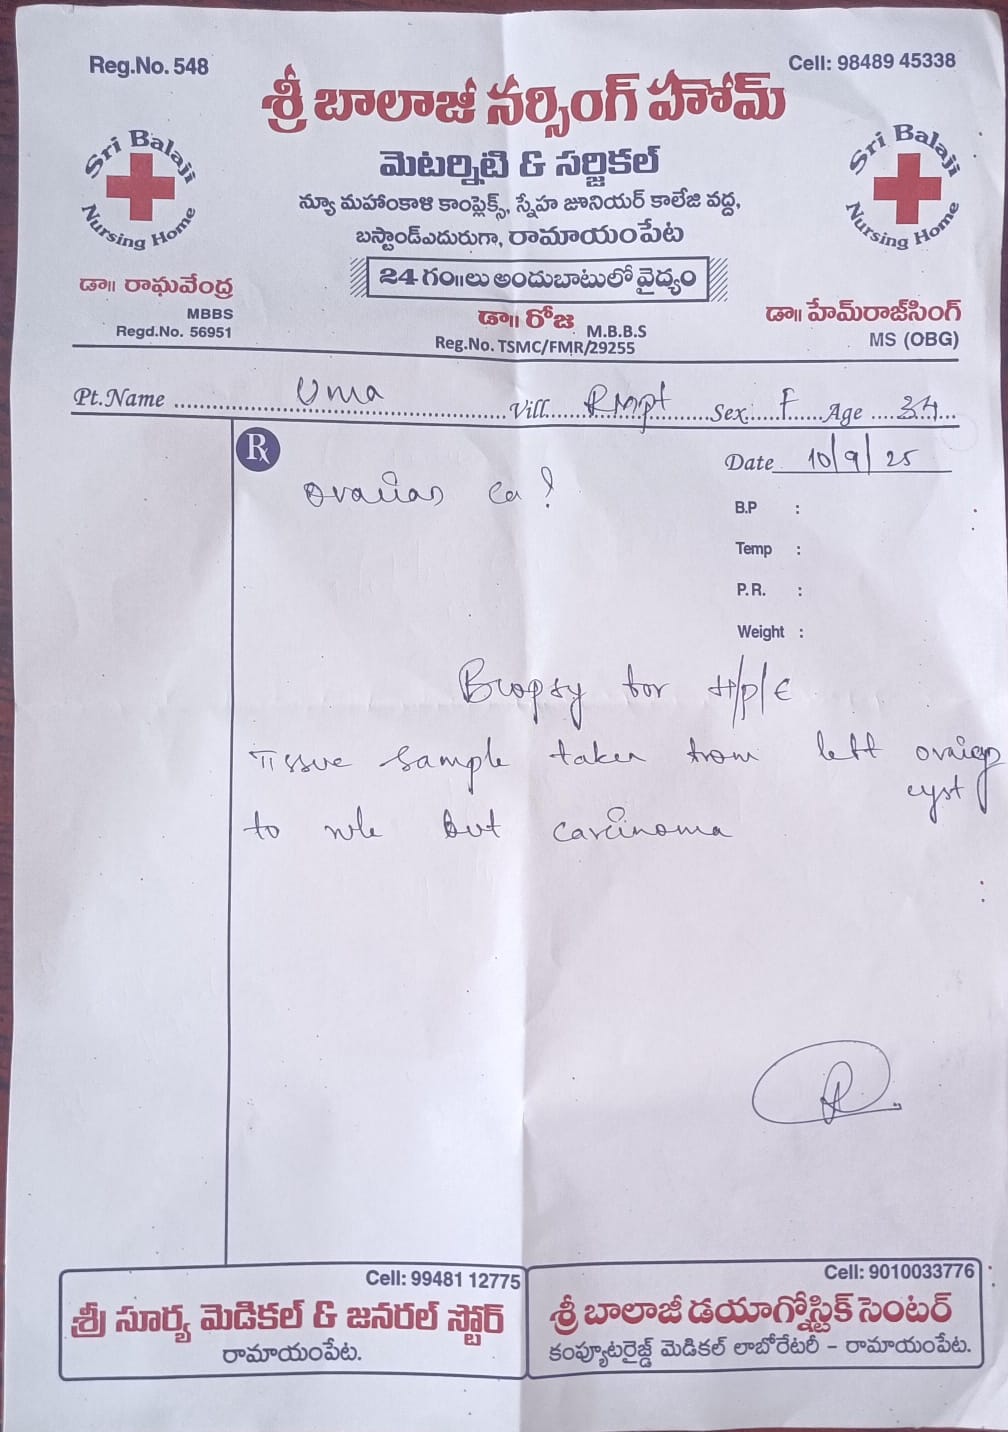 Reg.No. 548
Cell: 98489 45338
శ్రీ బాలాజీ నర్సింగ్ హోమ్
Sri Balaji Nursing Home
మెటర్నిటి & సర్జికల్
Sri Balaji Nursing Home
న్యూ మహాంకాళి కాంప్లెక్స్, స్నేహ జూనియర్ కాలేజి వద్ద,
బస్టాండ్ఎదురుగా, రామాయంపేట
24 గం॥లు అందుబాటులో వైద్యం
డా॥ రాఘవేంద్ర
MBBS
Regd.No. 56951
డా॥ రోజ M.B.B.S
Reg.No. TSMC/FMR/29255
డా॥ హేమ్‌రాజ్‌సింగ్
MS (OBG)
Pt.Name Uma Vill. RMpt Sex F Age 34
Rx
Date 10/9/25
Ovarian Ca?
B.P :
Temp :
P.R. :
Weight :
Biopsy for H/P/E
Tissue sample taken from left ovarian
cyst
to rule out carcinoma
Cell: 99481 12775
శ్రీ సూర్య మెడికల్ & జనరల్ స్టోర్
రామాయంపేట.
Cell: 9010033776
శ్రీ బాలాజీ డయాగ్నోస్టిక్ సెంటర్
కంప్యూటరైజ్డ్ మెడికల్ లాబోరేటరీ - రామాయంపేట.